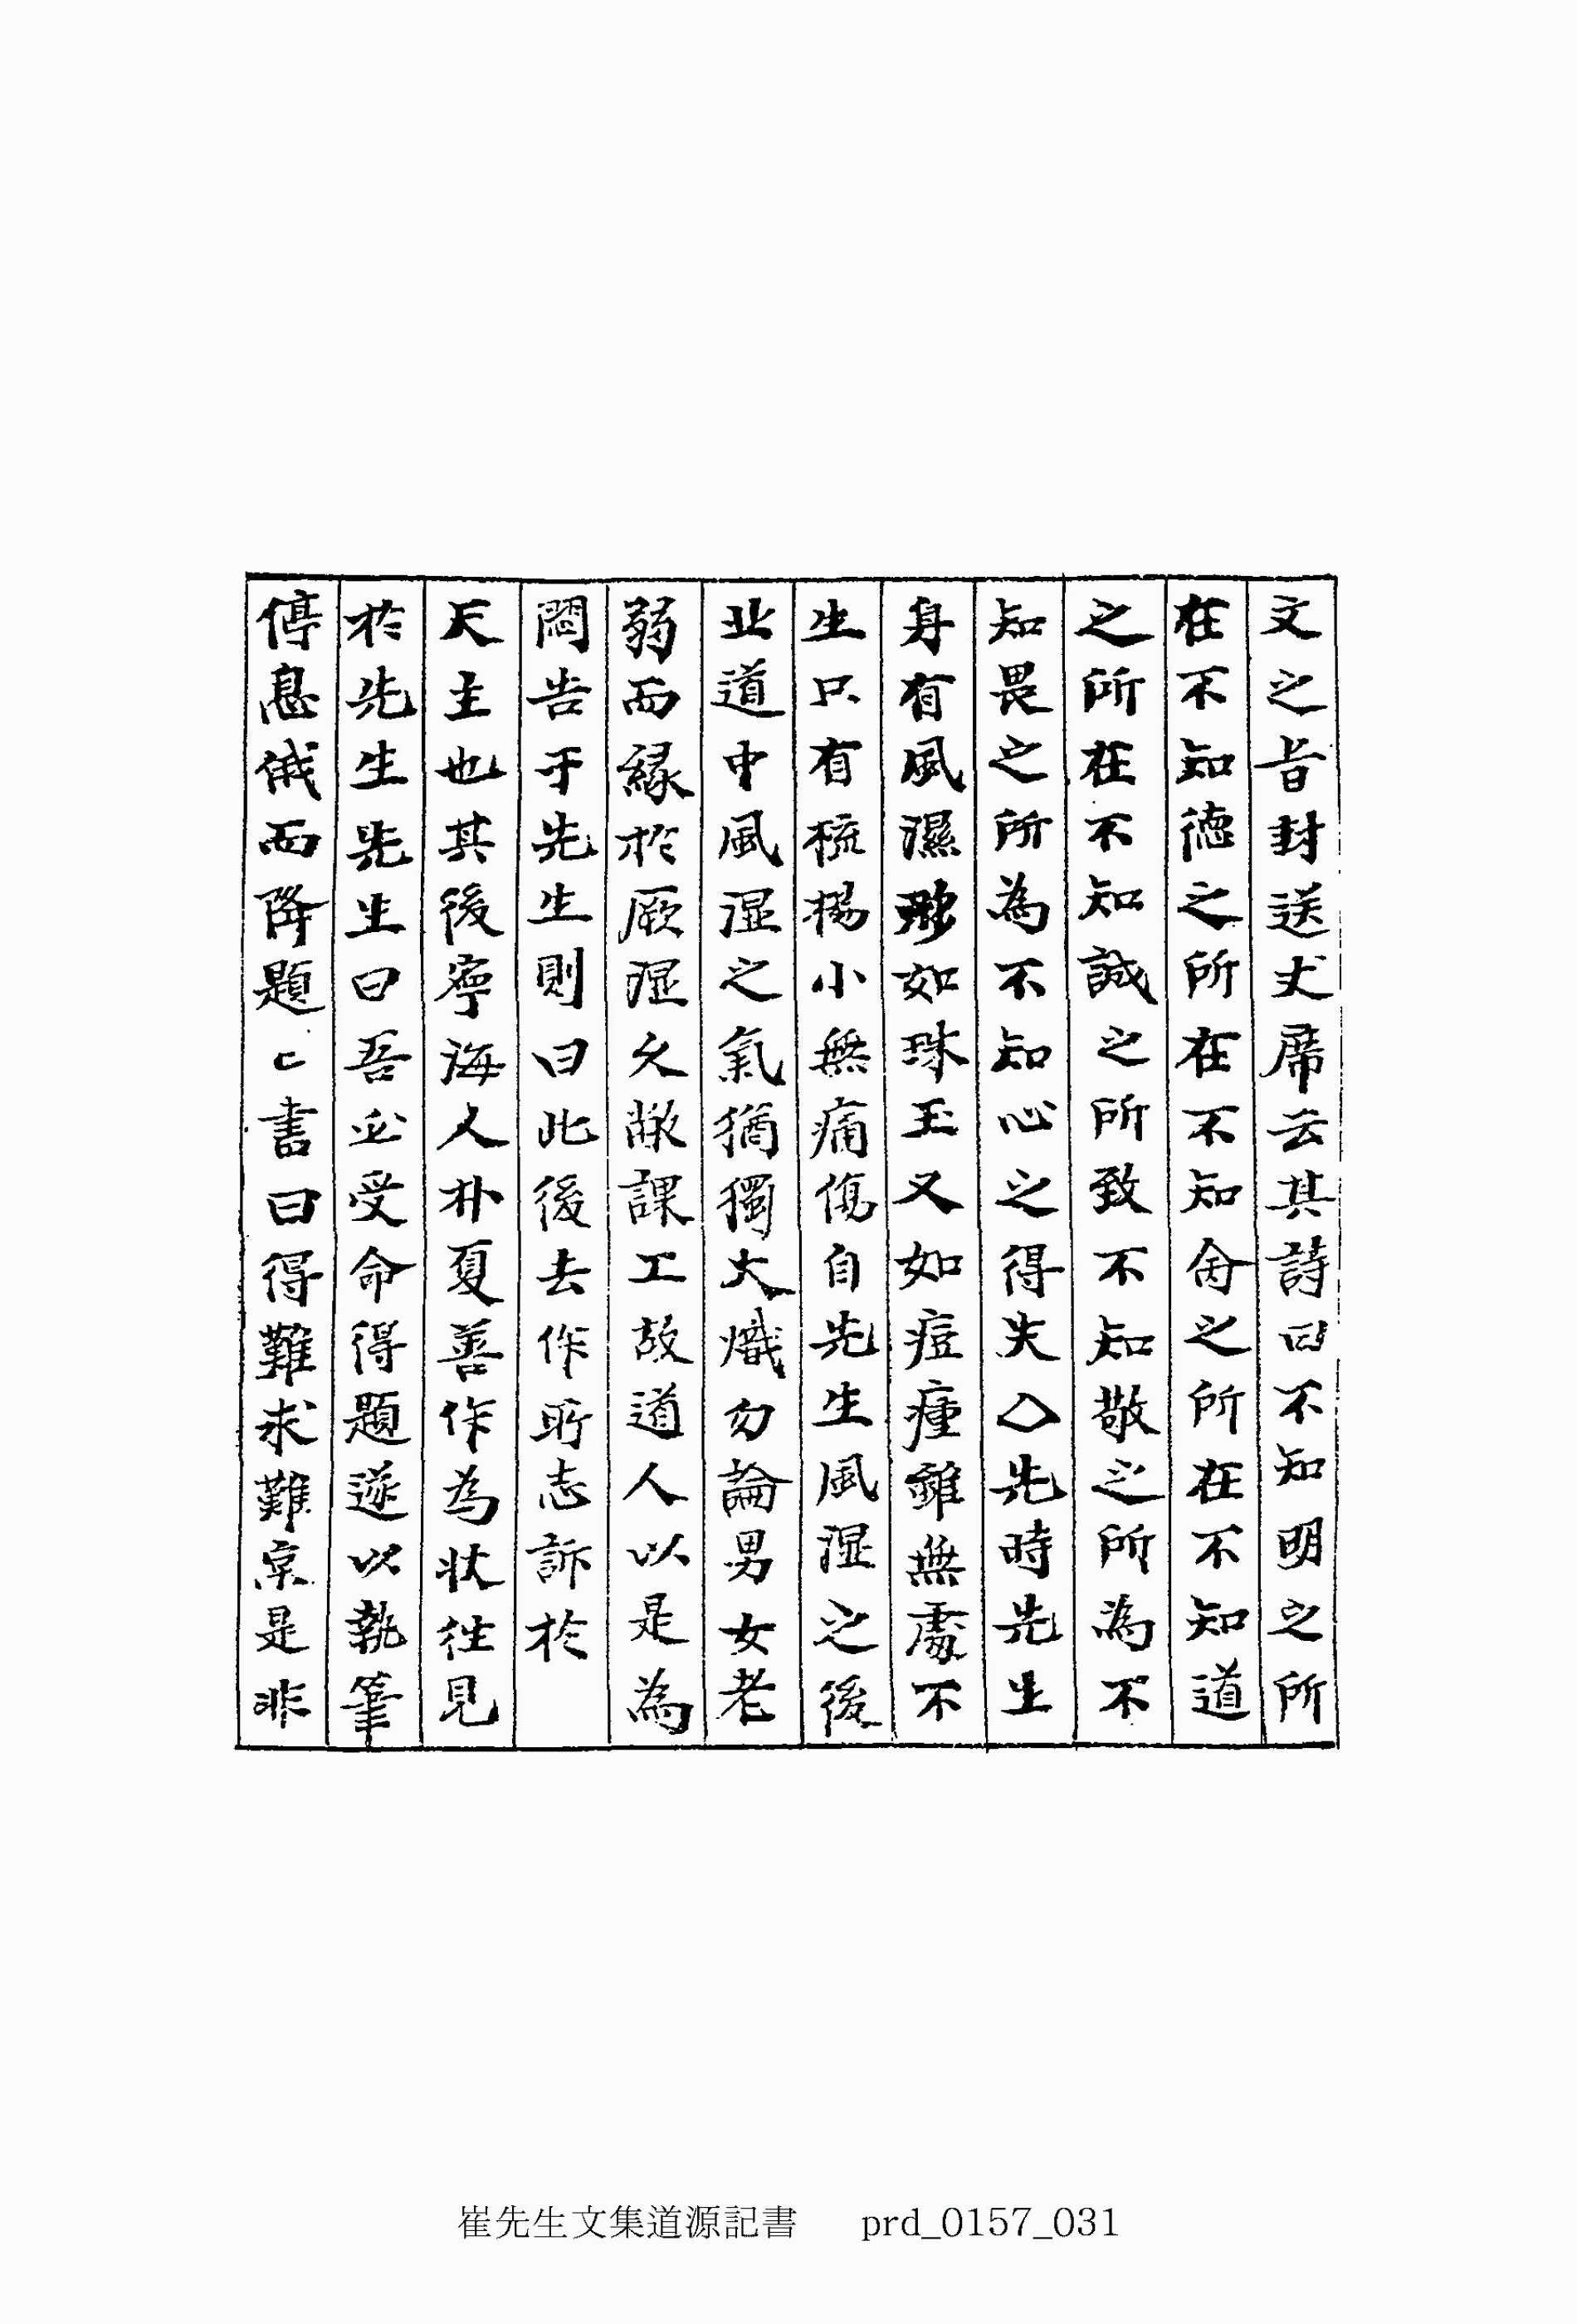 文之旨封送丈席云其詩曰不知明之所
在不知德之所在不知命之所在不知道
之所在不知誠之所致不知敬之所為不
知畏之所為不知心之得失◇先時先生
身有風濕形如珠玉又如痘瘇雖無處不
生只有梳楊小無痛傷自先生風湿之後
北道中風湿之氣猶獨大熾勿論男女老
弱而緣於厥湿久欲課工故道人以是為
悶告于先生則曰此後去作所志訴於
天主也其後寧海人朴夏善作為狀徃見
於先生先生曰吾必受命得題遂以執筆
停息俄而降題〻書曰得難求難京是非
崔先生文集道源記書 prd_0157_031